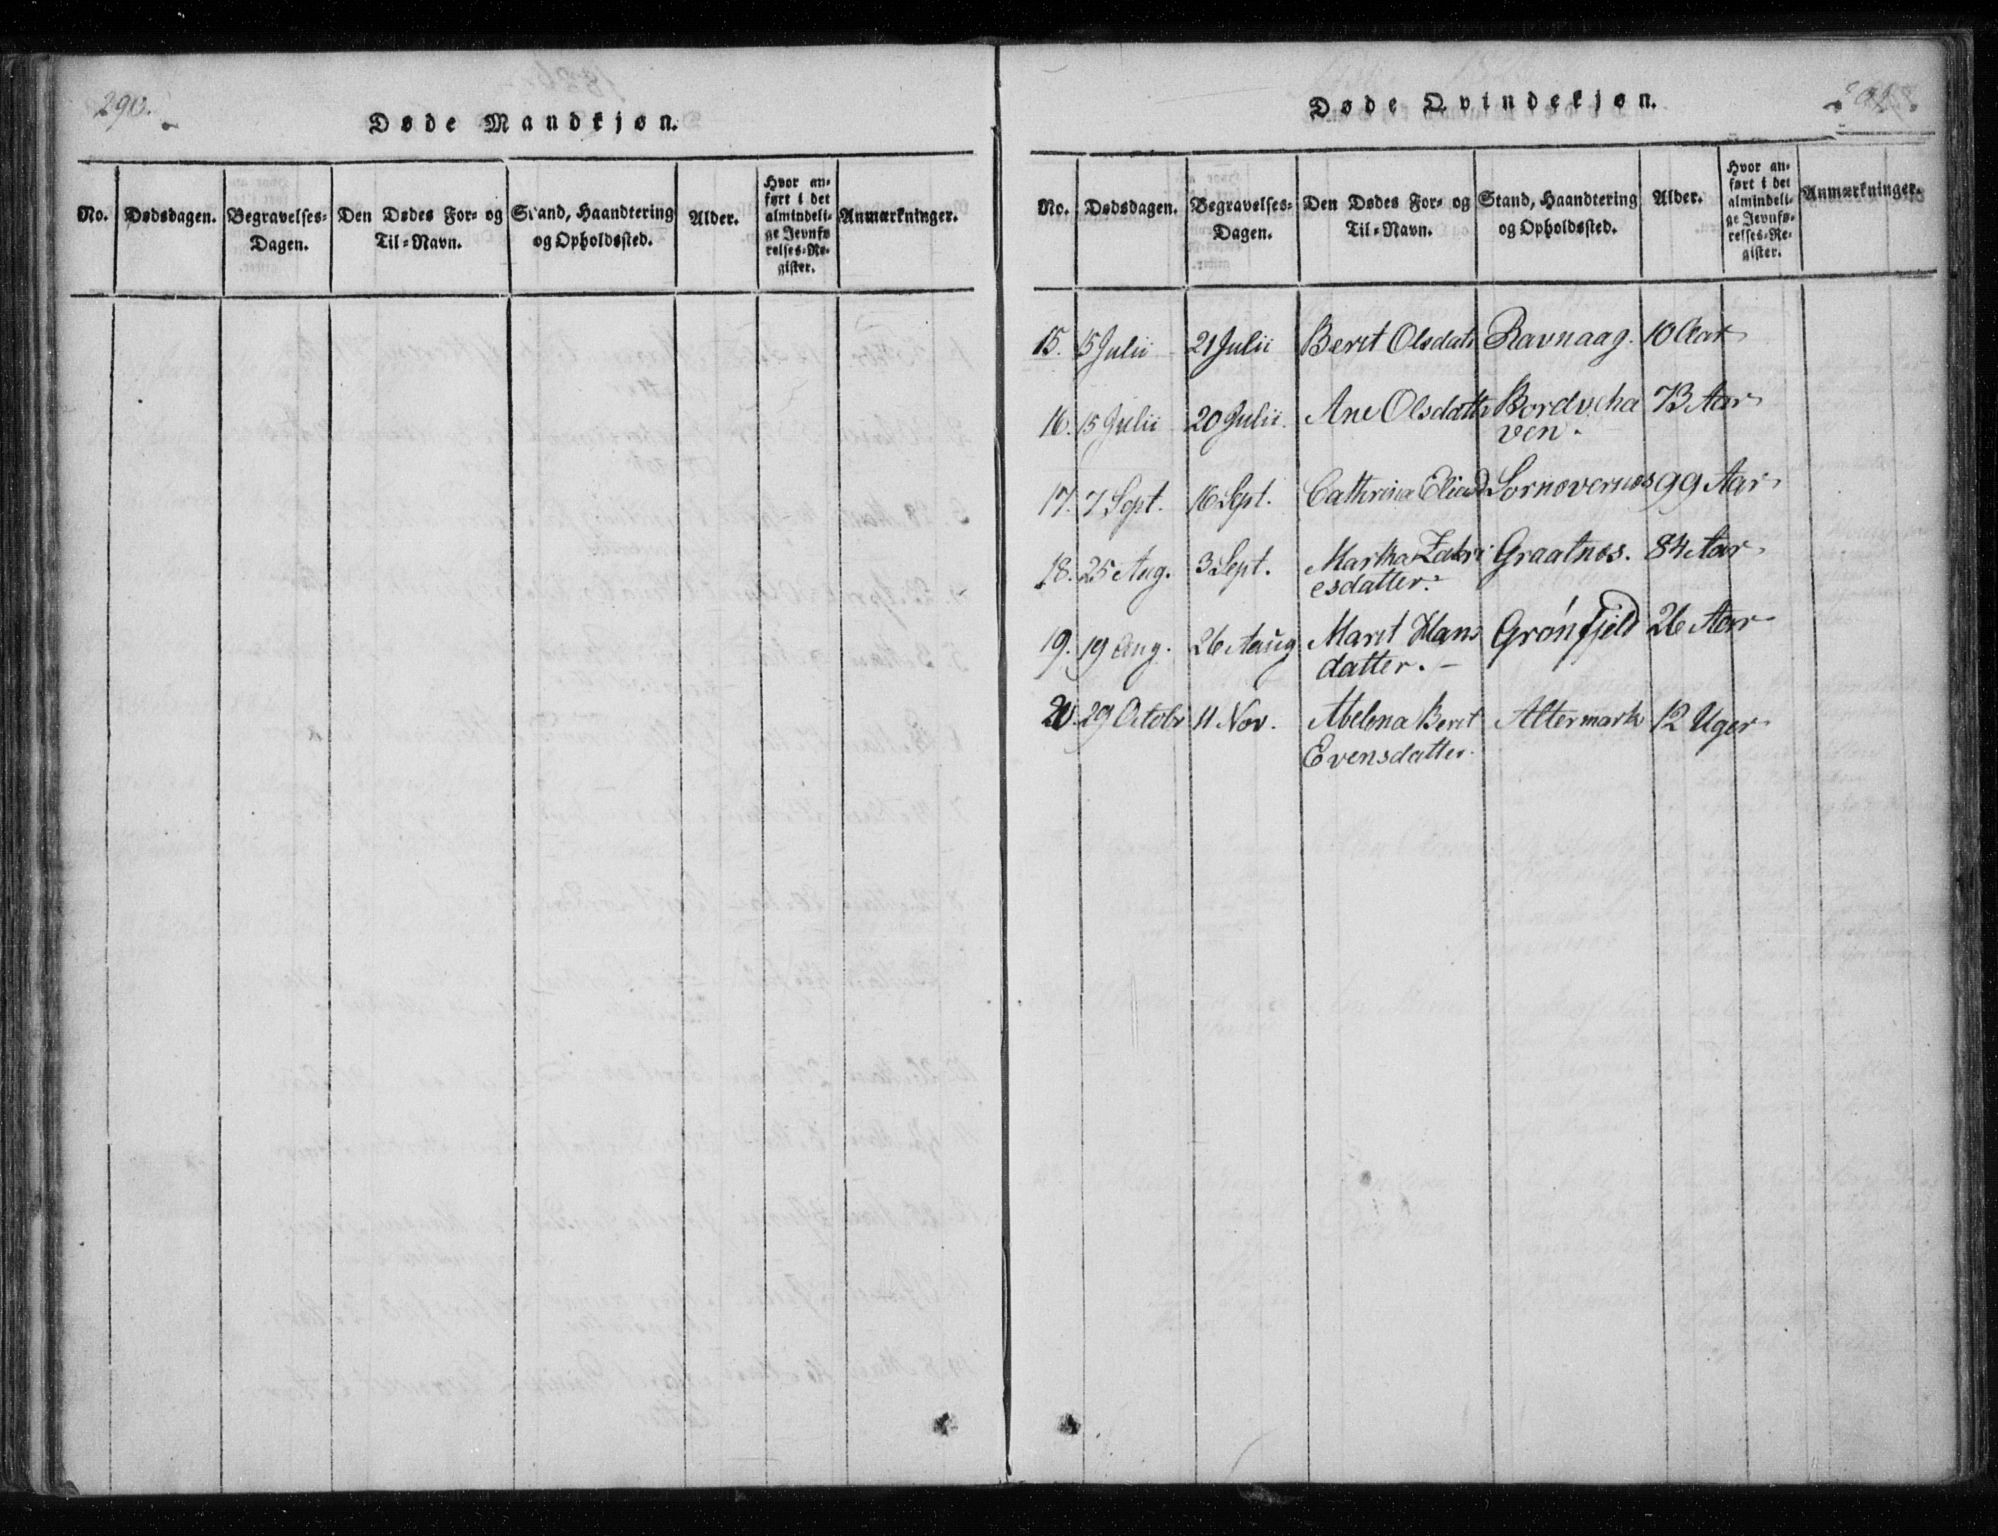 290.
Døde Mandkjøn.
No. Dødsdagen. Begravelses-Dagen. Den Dødes For- og Til-Navn. Stand, Haandtering og Opholdssted. Alder. Hvor anført i det almindelige Jevnførelses-Register. Anmærkninger.
Døde Qvindekjøn.
No. Dødsdagen. Begravelses-Dagen. Den Dødes For- og Til-Navn. Stand, Haandtering og Opholdssted. Alder. Hvor anført i det almindelige Jevnførelses-Register. Anmærkninger.
15. 15 Julii 21 Julii Berit Olsdatr Ravnaag. 10 Aar
16. 15 Julii 20 Julii. Ane Olsdattr Bordveha 73 Aar
ven.
17. 7 Sept. 16 Sept. Cathrina Eliasd Sørnovernes 99 Aar
18. 25 Aug. 3 Sept. Martha Zakri Graatnes. 84 Aar
esdatter.
19. 19 Aug. 26 Aaug Marit Hans Grønfjeld 26 Aar
datter.
20. 29 Octobr 11 Nov. Abelona Berit Altermark 12 Uger
Evensdatter.